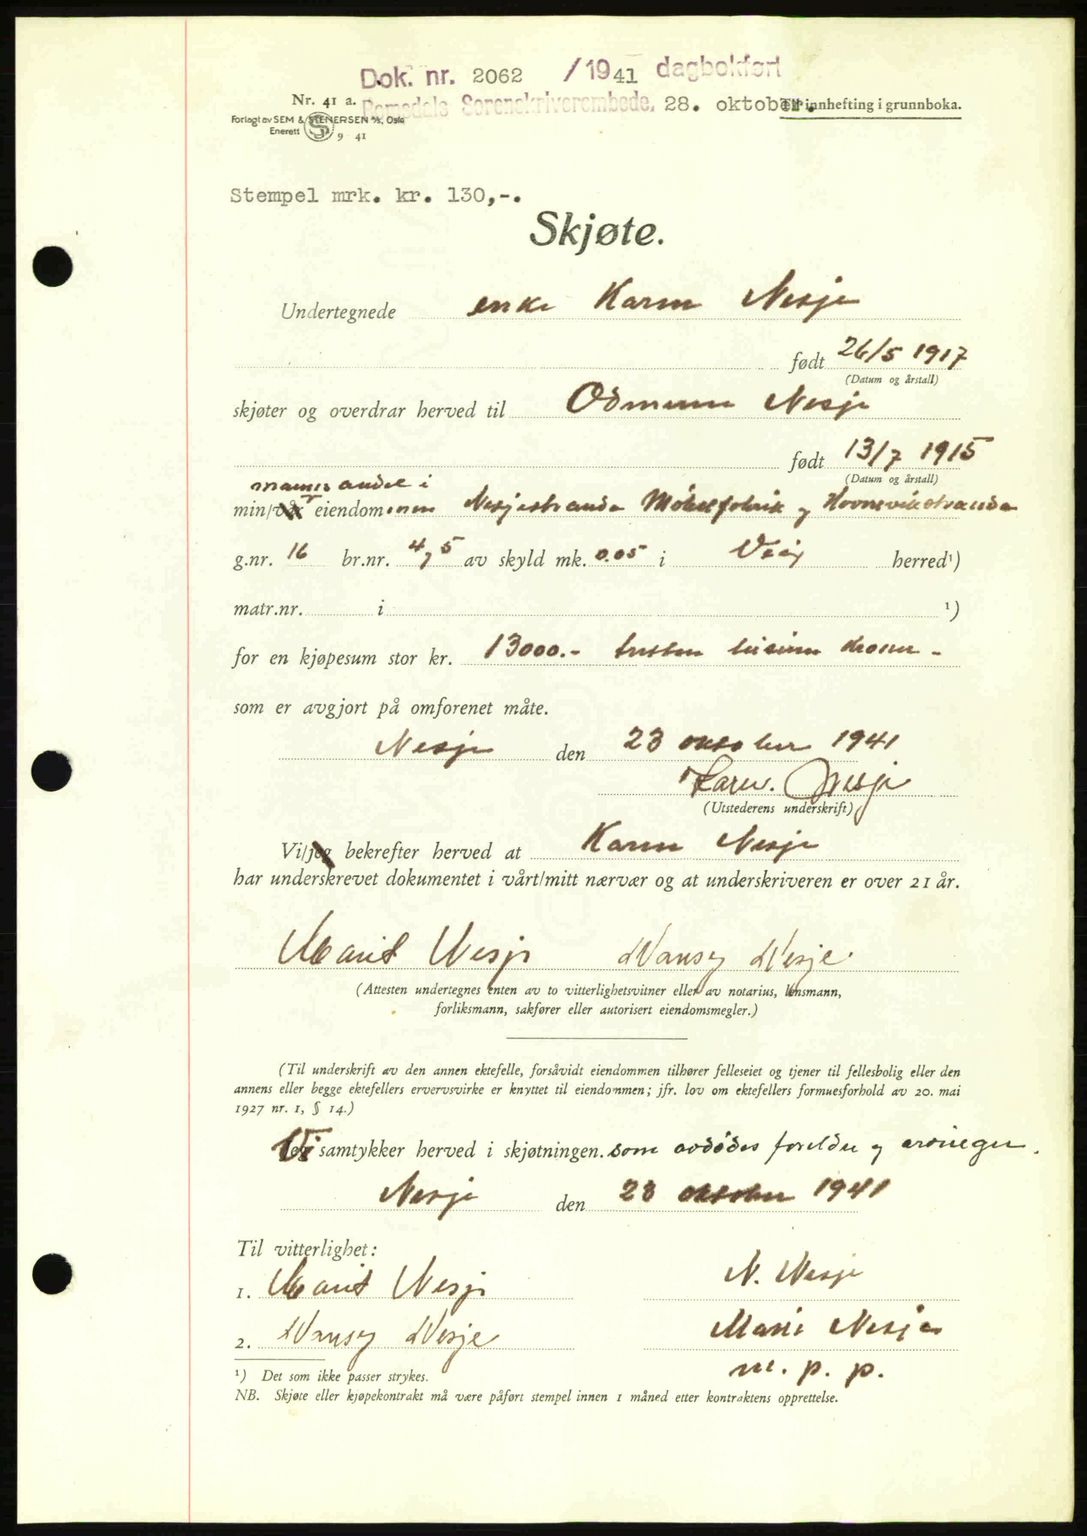 Dok. nr. 2062 /1941 dagbokført
Nr. 41 a. Romsdals Sorenskriverembede, 28. oktober. Til innhefting i grunnboka.
Forlagt av SEM & STENERSEN A/S, Oslo
Enerett 9 41
Stempel mrk. kr. 130,-.
Skjøte.
Undertegnede enke Karen Nesje
født 26/5 1917
(Datum og årstall)
skjøter og overdrar herved til Odmunn Nesje
født 13/7 1915
(Datum og årstall)
manns andel i
min/vår eiendommen Nesjestranda Møbelfabrik og Hovnsvikstranda
g.nr. 16 br.nr. 4, 5 av skyld mk. 0.05 i Veøy herred¹)
matr.nr. i ¹)
for en kjøpesum stor kr. 13000.- tretten tusinn kroner -
som er avgjort på omforenet måte.
Nesje den 23 oktober 1941
Karen Nesje
(Utstederens underskrift)
Vi/jeg bekrefter herved at Karen Nesje
har underskrevet dokumentet i vårt/mitt nærvær og at underskriveren er over 21 år.
Marit Nesje Nansy Nesje
(Attesten undertegnes enten av to vitterlighetsvitner eller av notarius, lensmann,
forliksmann, sakfører eller autorisert eiendomsmegler.)
(Til underskrift av den annen ektefelle, forsåvidt eiendommen tilhører felleseiet og tjener til fellesbolig eller den
annens eller begge ektefellers ervervsvirke er knyttet til eiendommen; jfr. lov om ektefellers formuesforhold av 20. mai
1927 nr. 1, § 14.)
Vi samtykker herved i skjøtningen. som avdødes foreldre og arvinger.
Nesje den 23 oktober 1941
Til vitterlighet:
1. Marit Nesje N. Nesje
2. Nansy Nesje Marie Nesje
m. p. p.
¹) Det som ikke passer strykes.
NB. Skjøte eller kjøpekontrakt må være påført stempel innen 1 måned etter kontraktens opprettelse.